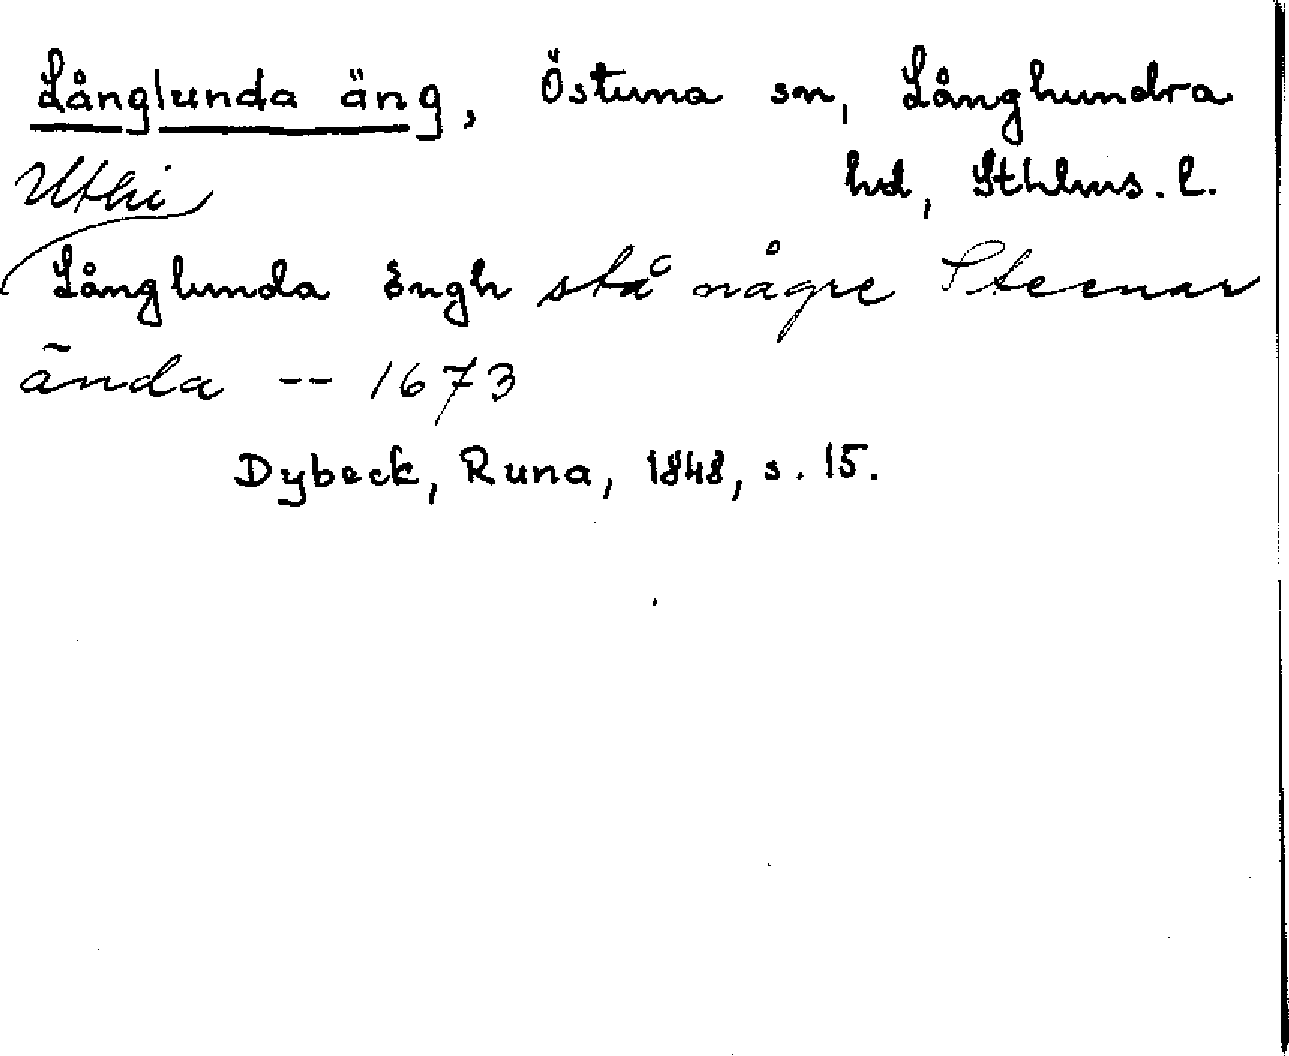 Långlunda äng, Östuna sn, Långhundra
hd, Sthlms. l.
Uthi
Långlunda Engh stå någre Steenar
ända -- 1673
Dybeck, Runa, 1848, s. 15.